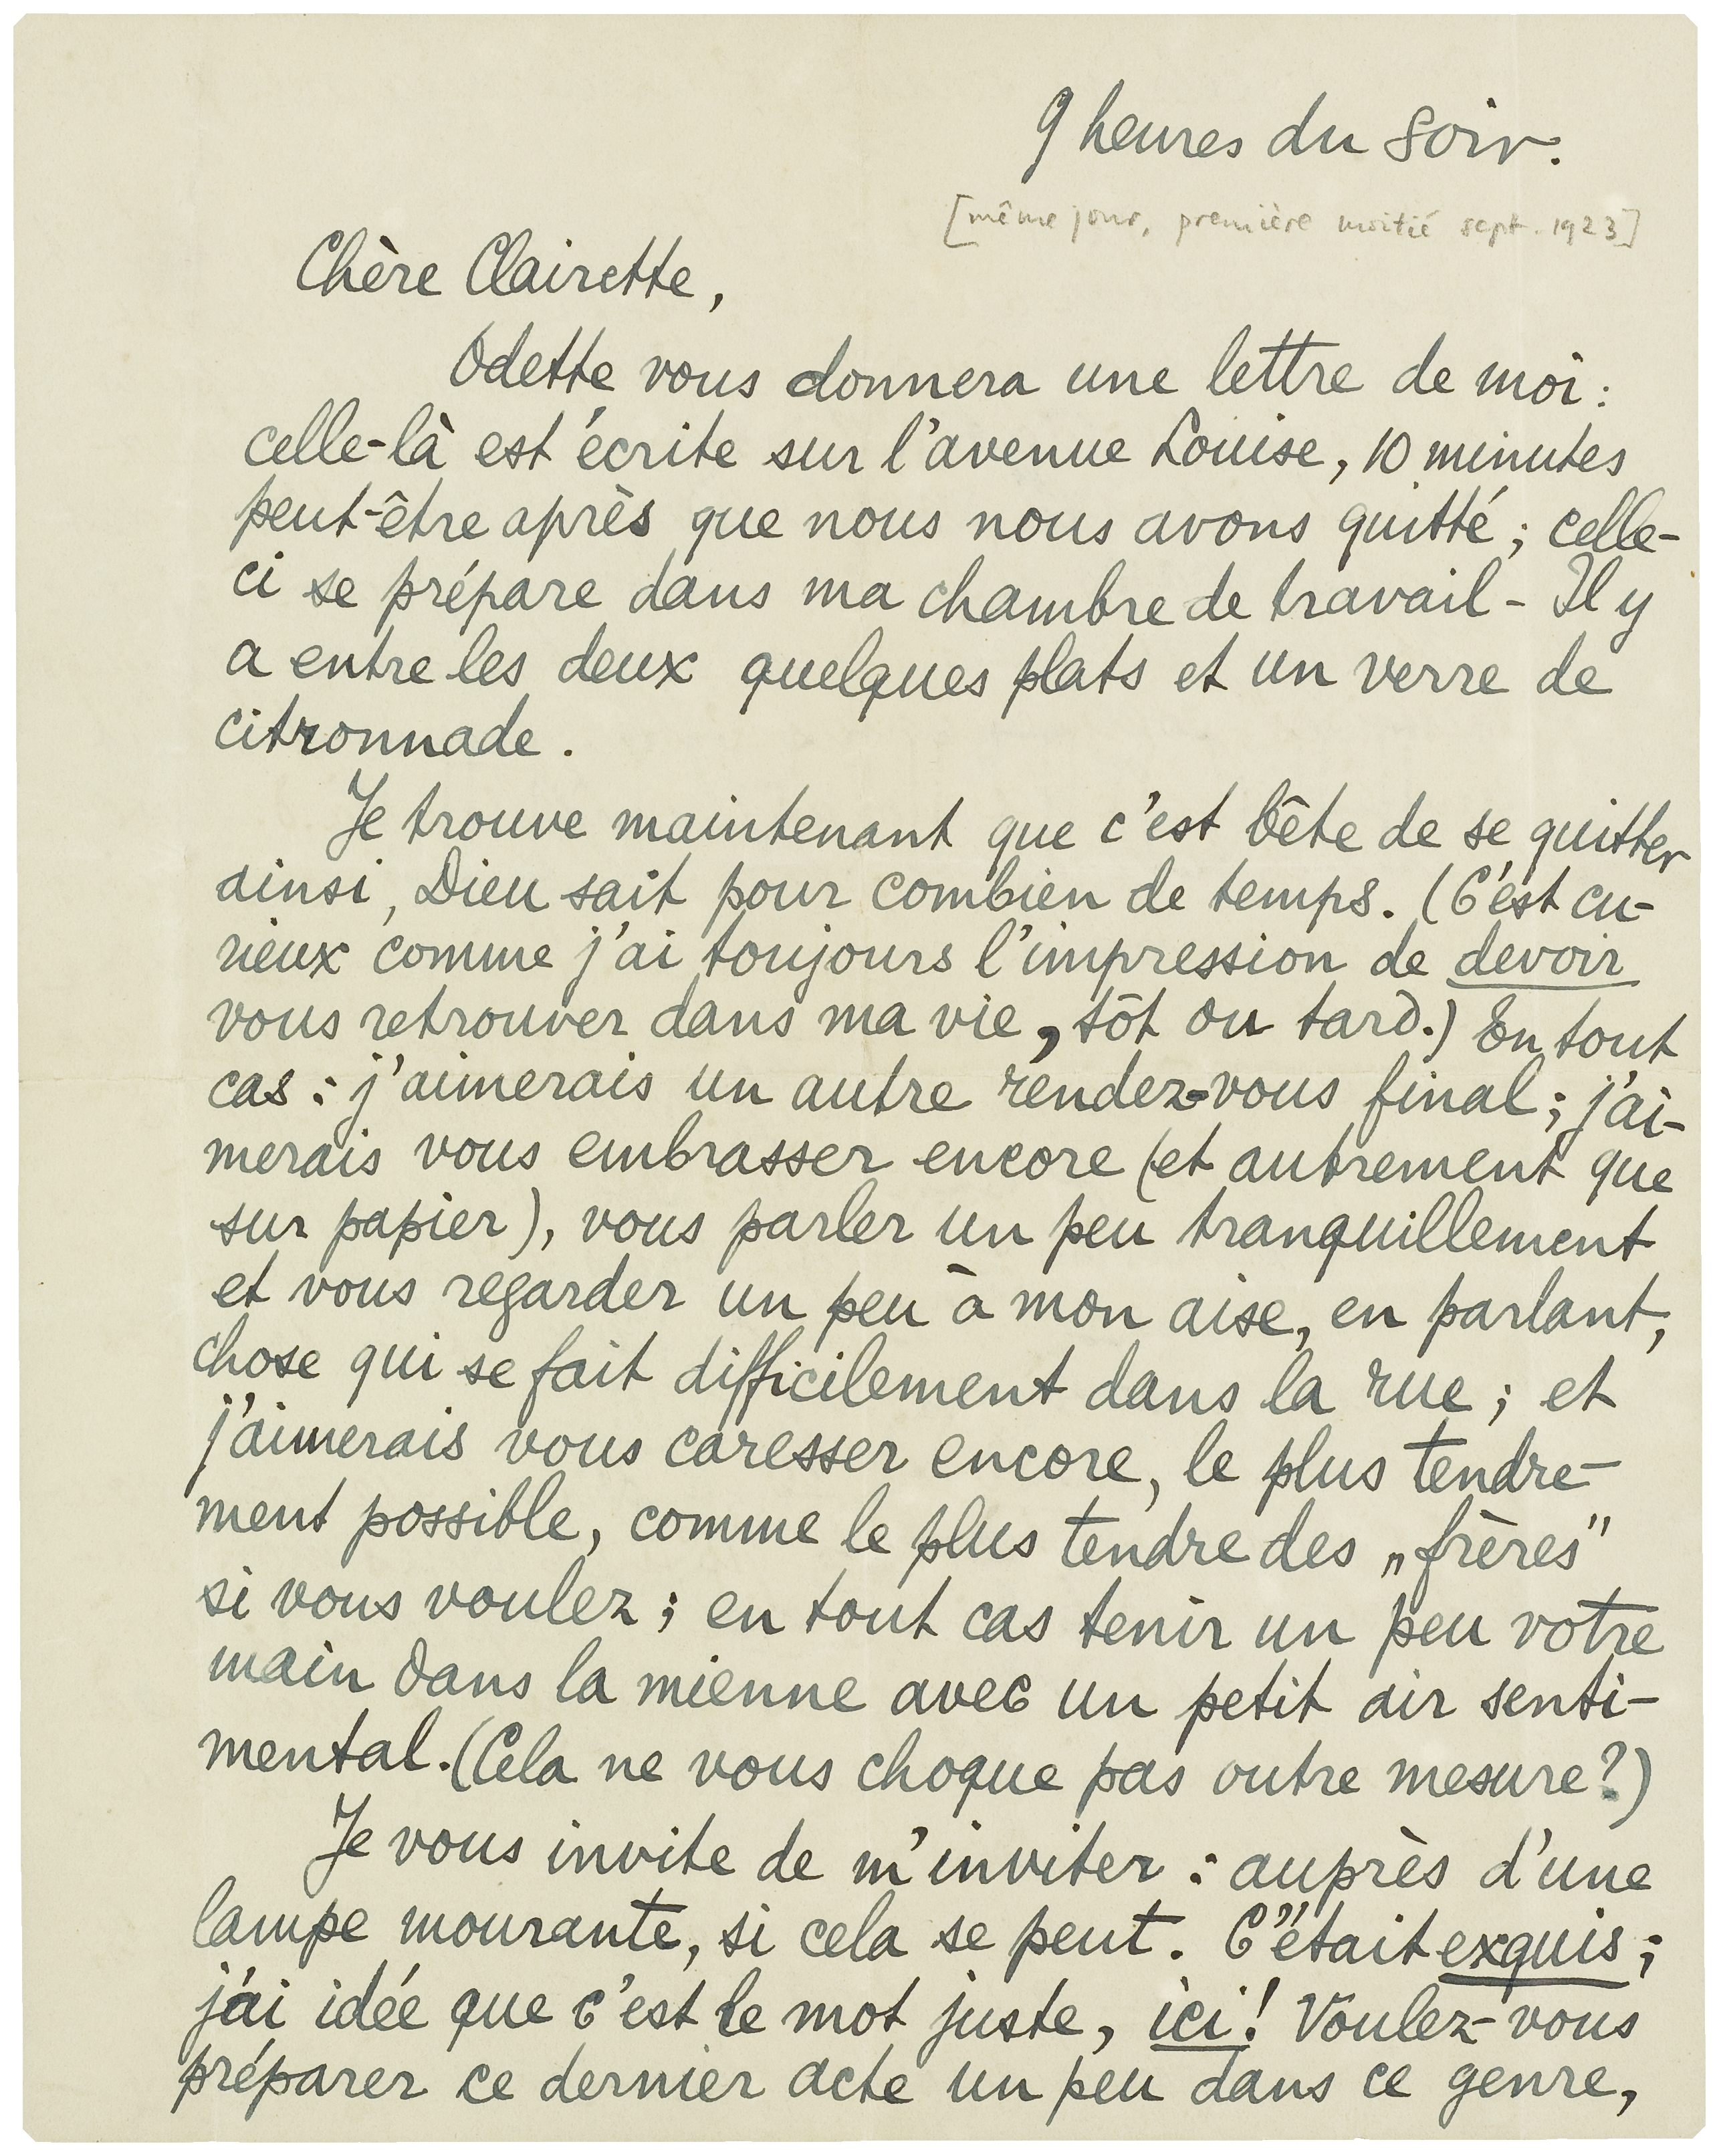 9 heures du soir.
[même jour, première moitié sept. 1923]
Chère Clairette,
Odette vous donnera une lettre de moi :
celle-là est écrite sur l'avenue Louise, 10 minutes
peut-être après que nous nous avons quitté ; celle-
ci se prépare dans ma chambre de travail - Il y
a entre les deux quelques plats et un verre de
citronnade .
Je trouve maintenant que c'est bête de se quitter
ainsi, Dieu sait pour combien de temps. (C'est cu-
rieux comme j'ai toujours l'impression de devoir
vous retrouver dans ma vie, tôt ou tard.) En tout
cas : j'aimerais un autre rendez-vous final ; j'ai-
merais vous embrasser encore (et autrement que
sur papier), vous parler un peu tranquillement
et vous regarder un peu à mon aise, en parlant,
chose qui se fait difficilement dans la rue ; et
j'aimerais vous caresser encore, le plus tendre-
ment possible, comme le plus tendre des „frères"
si vous voulez ; en tout cas tenir un peu votre
main dans la mienne avec un petit air senti-
mental. (Cela ne vous choque pas outre mesure?)
Je vous invite de m'inviter : auprès d'une
lampe mourante, si cela se peut. C'était exquis ;
j'ai idée que c'est le mot juste, ici! Voulez-vous
préparer ce dernier acte un peu dans ce genre,